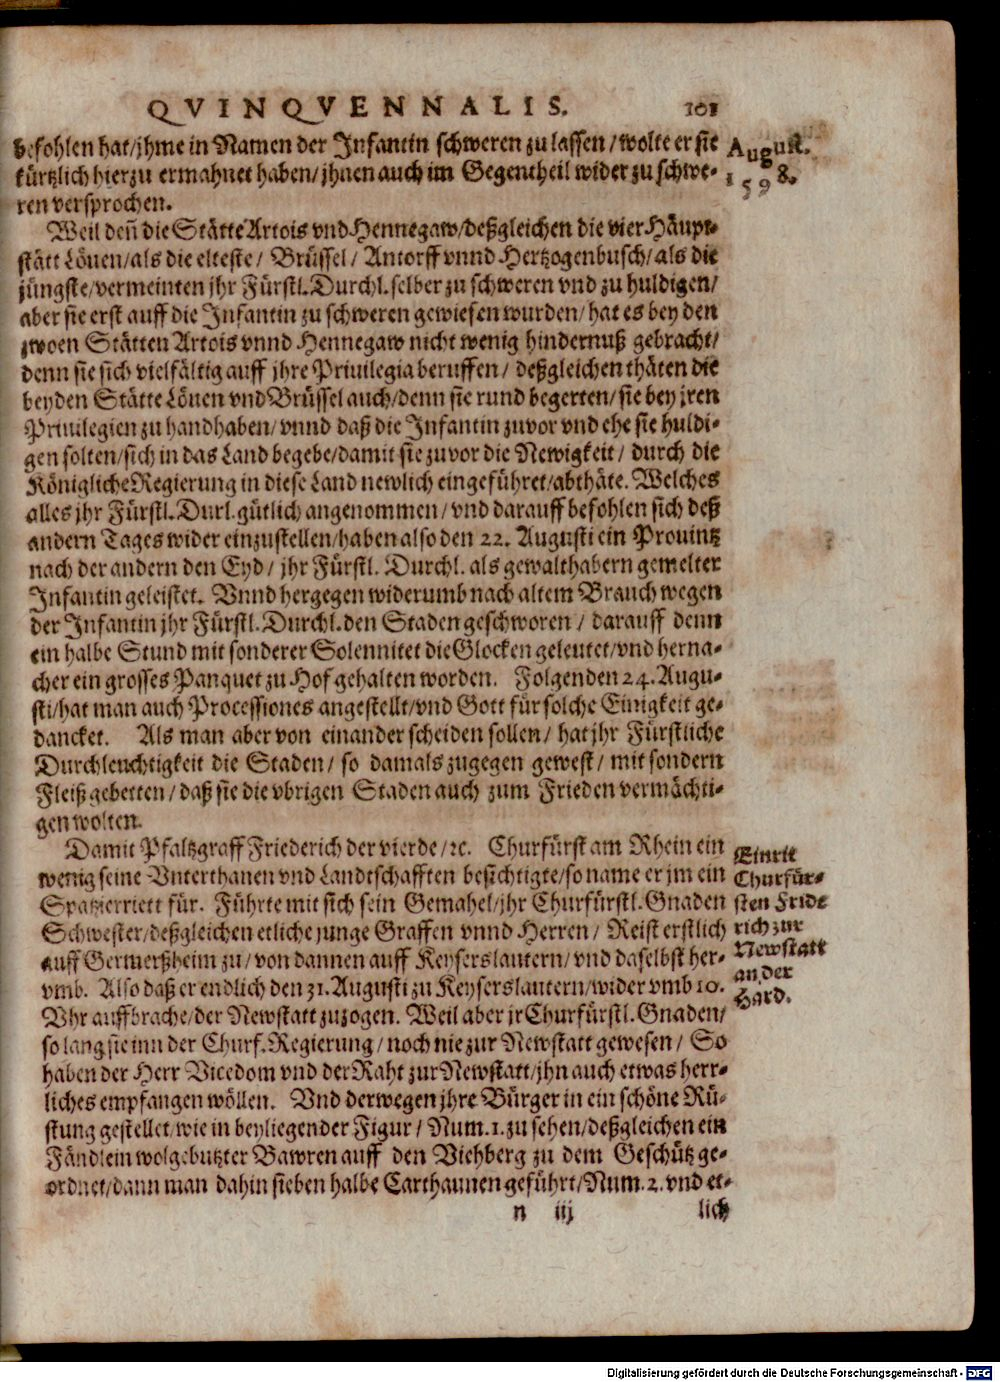 QVINQVENNALIS. 101
befohlen hat/jhme in Namen der Infantin schweren zu lassen/wolte er sie
kürtzlich hierzu ermahnet haben/jhnen auch im Gegentheil wider zu schwe-
ren versprochen.
August.
1598.
Weil deñ die Stätte Artois vnd Hennegaw/deßgleichen die vier Häupt-
stätt Löuen/als die elteste/ Brüssel/ Antorff vnnd Hertzogenbusch/als die
jüngste/vermeinten jhr Fürstl. Durchl. selber zu schweren vnd zu huldigen/
aber sie erst auff die Infantin zu schweren gewiesen wurden/hat es bey den
zwoen Stätten Artois vnnd Hennegaw nicht wenig hindernuß gebracht/
denn sie sich vielfältig auff jhre Priuilegia beruffen/ deßgleichen thäten die
beyden Stätte Löuen vnd Brüssel auch/denn sie rund begerten/sie bey jren
Priuilegien zu handhaben/vnnd daß die Infantin zuvor vnd ehe sie huldi-
gen solten/sich in das Land begebe/damit sie zuvor die Newigkeit/ durch die
Königliche Regierung in diese Land newlich eingeführet/abthäte. Welches
alles jhr Fürstl. Durl. gütlich angenommen/vnd darauff befohlen sich deß
andern Tages wider einzustellen/haben also den 22. Augusti ein Prouintz
nach der andern den Eyd/ jhr Fürstl. Durchl. als gewalthabern gemelter
Infantin geleistet. Vnnd hergegen widerumb nach altem Brauch wegen
der Infantin jhr Fürstl. Durchl. den Staden geschworen/ darauff denn
ein halbe Stund mit sonderer Solennitet die Glocken geleutet/vnd herna-
cher ein grosses Panquet zu Hof gehalten worden. Folgenden 24. Augu-
sti/hat man auch Processiones angestellt/vnd Gott für solche Einigkeit ge-
dancket. Als man aber von einander scheiden sollen/ hat jhr Fürstliche
Durchleuchtigkeit die Staden/ so damals zugegen gewest/ mit sondern
Fleiß gebetten/daß sie die vbrigen Staden auch zum Frieden vermächti-
gen wolten.
Damit Pfaltzgraff Friederich der vierde/ꝛc. Churfürst am Rhein ein
wenig seine Vnterthanen vnd Landtschafften besichtigte/so name er jm ein
Spatzierriett für. Führte mit sich sein Gemahel/jhr Churfürstl. Gnaden
Schwester/deßgleichen etliche junge Graffen vnnd Herren/ Reist erstlich
auff Germerßheim zu/von dannen auff Keyserslautern/vnd daselbst her-
vmb. Also daß er endlich den 31. Augusti zu Keyserslautern/wider vmb 10.
Vhr auffbrache/der Newstatt zuzogen. Weil aber jr Churfürstl. Gnaden/
so lang sie inn der Churf. Regierung/noch nie zur Newstatt gewesen/ So
haben der Herr Vicedom vnd der Raht zur Newstatt/jhn auch etwas herr-
liches empfangen wöllen. Vnd derwegen jhre Bürger in ein schöne Rü-
stung gestellet/wie in beyliegender Figur/ Num. 1. zu sehen/deßgleichen ein
Fändlein wolgebutzter Bawren auff den Viehberg zu dem Geschütz ge-
ordnet/dann man dahin sieben halbe Carthaunen geführt/Num. 2. vnd et-
Einritt
Churfür-
sten Fride
rich zur
Newstatt
an der
Hard.
n iij lich
Digitalisierung gefördert durch die Deutsche Forschungsgemeinschaft - DFG